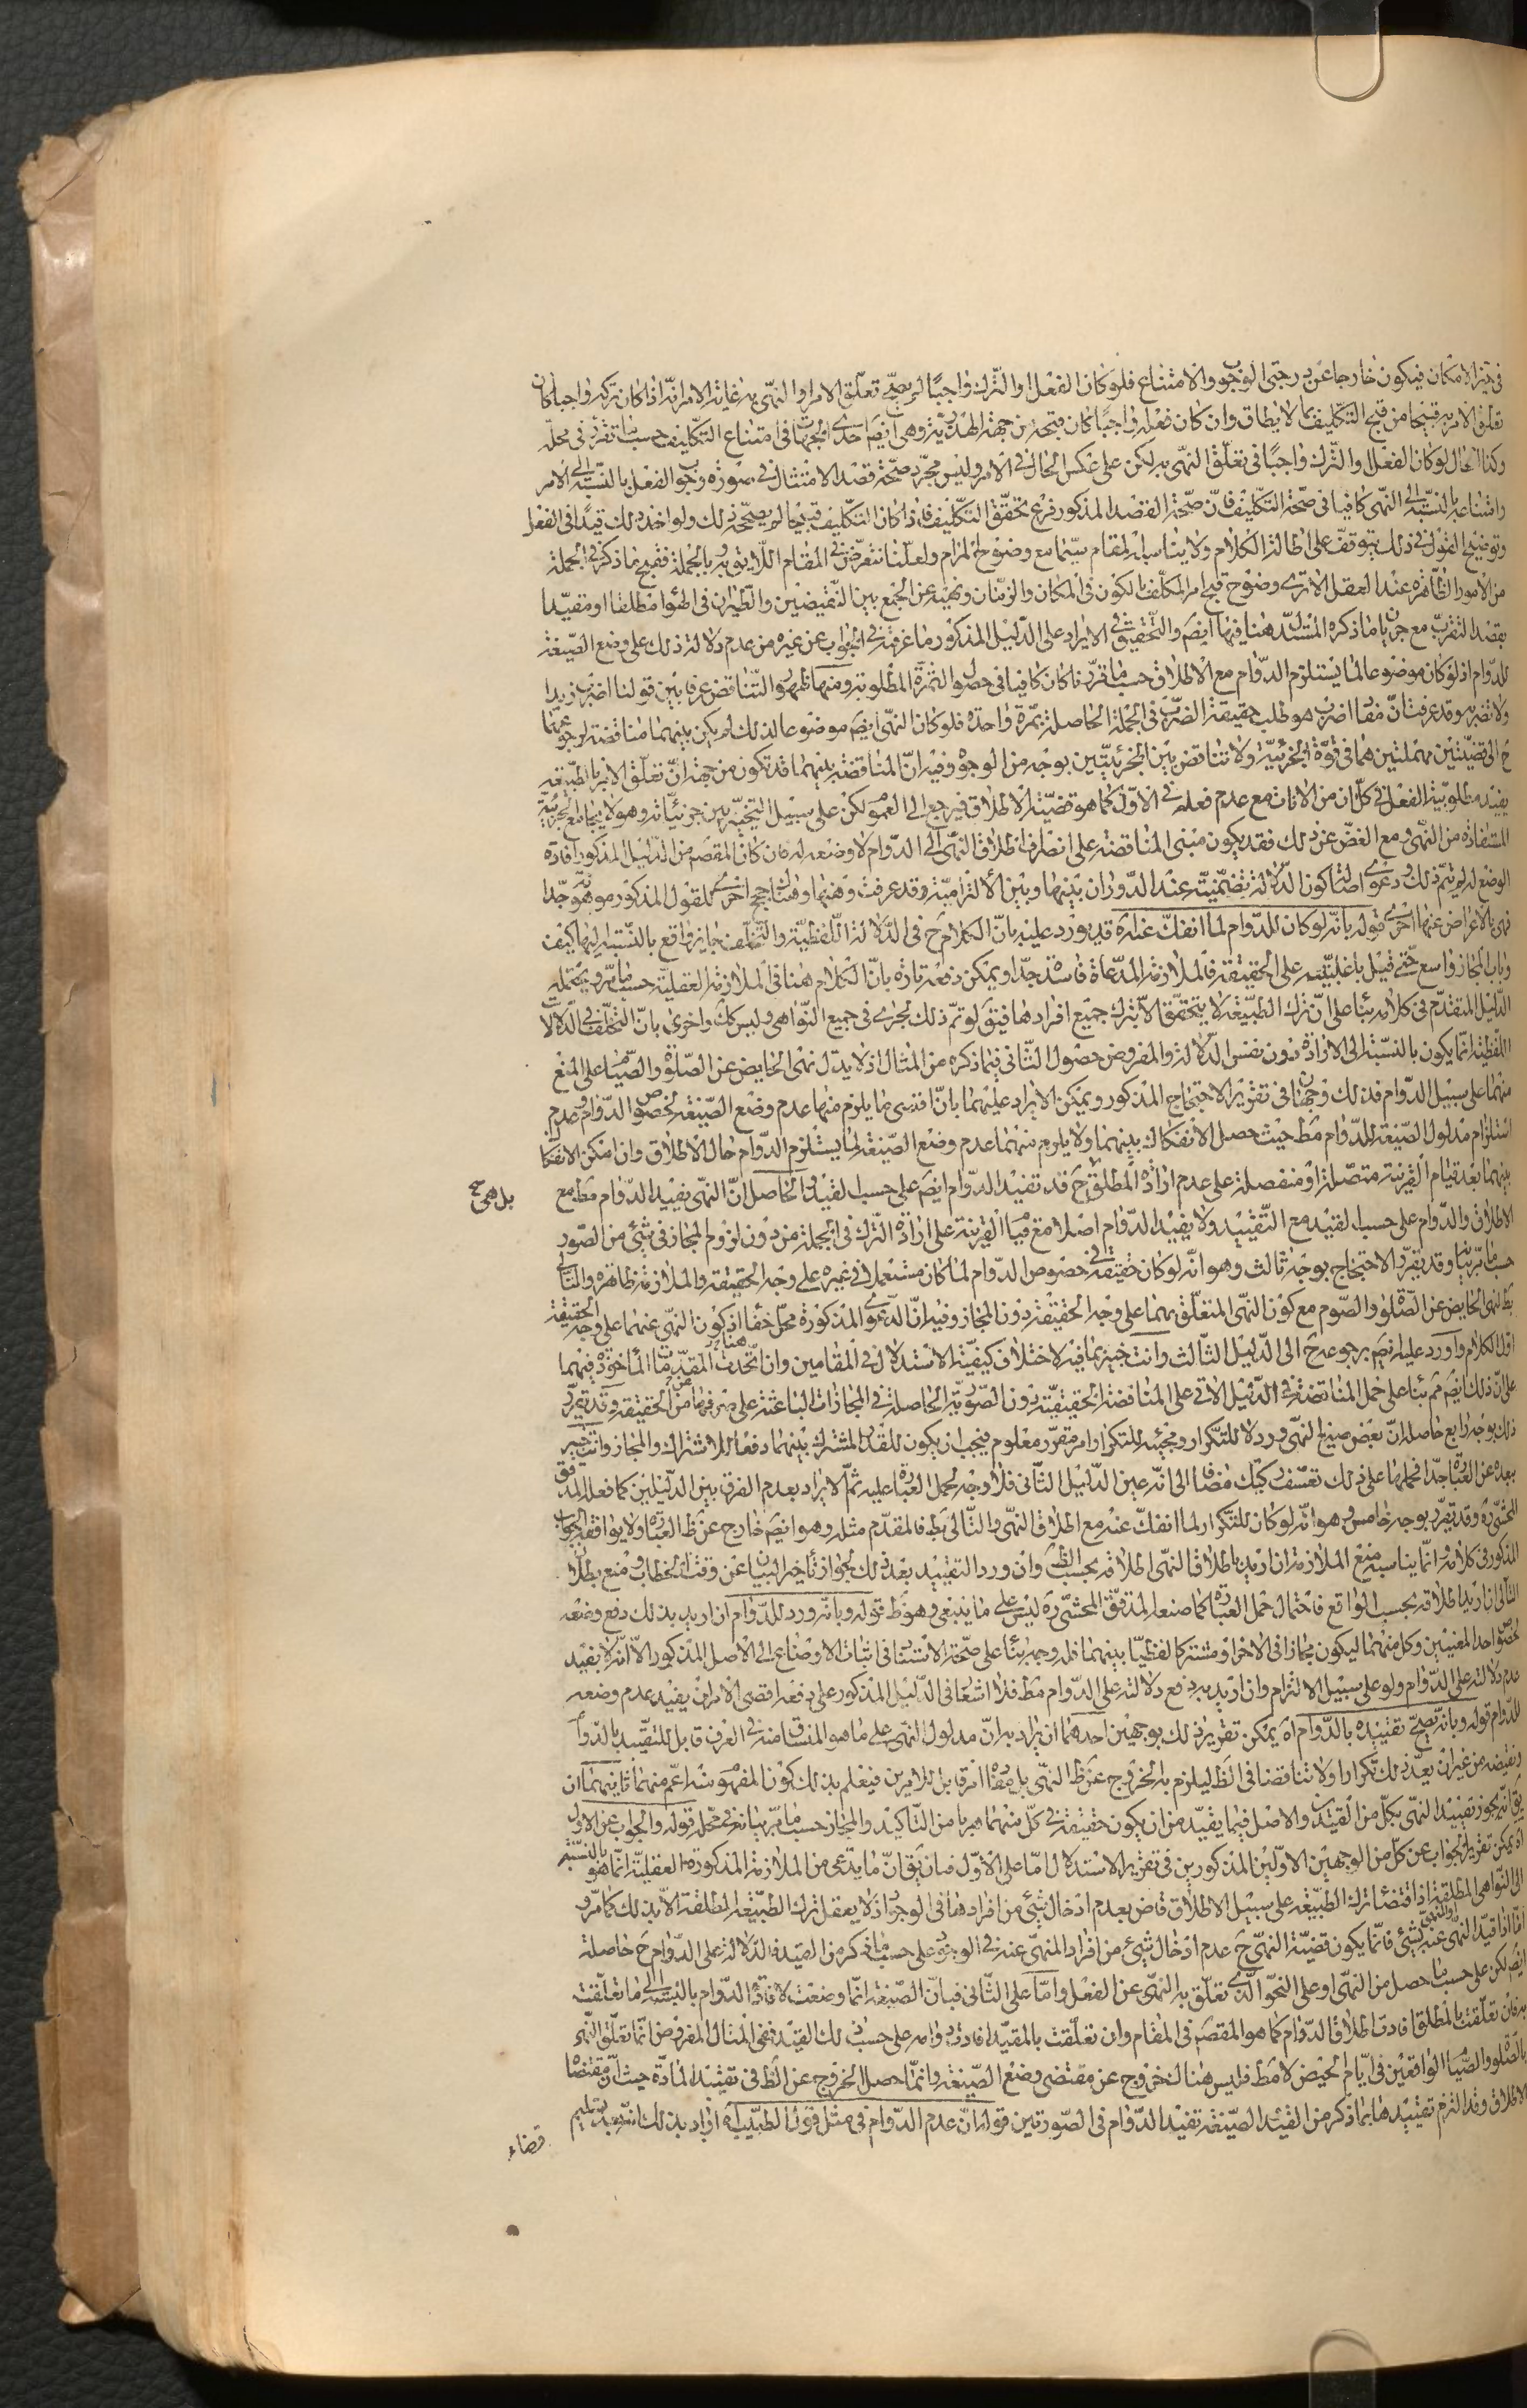 في حيز الامكان فيكون خارجا عن درجتي الوجوب والامتناع فلو كان الفعل او الترك واجبًا لم يصح تعلق الامر او النهي به غاية الامر انه اذا كان تركه واجبا كان
تعلق الامر به قبيحا من قبح التكليف بما لا يطاق وان كان فعله واجبًا كان قبحه من جهة الهذرية وهي ايضم احدى الجهات في امتناع التكليف حسب ما تقرر في محله
وكذا الحال لو كان الفعل او الترك واجبًا في تعلق النهي به لكن على عكس الحال في الامر وليس مجرد صحة قصد الامتثال في صورة وجوب الفعل بالنسبة الى الامر
وامتناعه بالنسبة الى النهي كافيا في صحة التكليف فان صحة القصد المذكور فرع تحقق التكليف فاذا كان التكليف قبيحا لم يصححه ذلك ولو اخذ ذلك قيدًا في الفعل
وتوضيح القول في ذلك يتوقف على اطالة الكلام ولا يناسبه المقام سيما مع وضوح المرام ولعلنا نتعرض في المقام اللايق به وبالجملة فقبح ما ذكر في الجملة
من الامور الظاهرة عند العقل الا ترى وضوح قبح امر المكلف بالكون في المكان والزمان ونهيه عن الجمع بين النقيضين والطيران في الهواء مطلقا او مقيدا
بقصد التقرب مع جريان ما ذكره المستدل هنا فيها ايضم والتحقيق في الايراد على الدليل المذكور ما عرفت في الجواب عن غيره من عدم دلالة ذلك على وضع الصيغة
للدوام اذ لو كان موضوعا لما يستلزم الدوام مع الاطلاق حسب ما قررنا كان كافيا في حصول الثمرة المطلوبة ومنها ظهور التناقض عرفا بين قولنا اضرب زيدا
ولا تضربه وقد عرفت ان مفاد اضرب هو طلب حقيقة الضرب في الجملة الحاصلة بمرة واحدة فلو كان النهي ايضم موضوعا لذلك لم يكن بينهما مناقضة لرجوعهما
ح الى قضيتين مهملتين هما في قوة الجزئية ولا تناقض بين الجزئيتين بوجه من الوجوه وفيه ان المناقضة بينهما قد تكون من جهة ان تعلق الامر بالطبيعة
يفيد مطلوبية الفعل في كل آن من الآنات مع عدم فعله في الاول كما هو قضية الاطلاق فيرجع الى العموم لكن على سبيل التخيير بين جزئياته وهو لا يجامع الجزئية
المستفادة من النهي ومع الغض عن ذلك فقد يكون مبنى المناقضة على انصراف اطلاق النهي الى الدوام لا وضعه له فان كان المقصم من الدليل المذكور افادة
الوضع له لم يتم ذلك ودعوى اصالة كون الدلالة تضمنية عند الدوران بينها وبين الالتزامية وقد عرفت وهنها وهناك حجج اخرى للقول المذكور موهونة جدا
فهي بالاعراض عنها احرى قوله بانه لو كان للدوام لما انفك عنه اه قد يورد عليه بان الكلام ح في الدلالة اللفظية والتخلف جايز واقع بالنسبة اليها كيف
وباب المجاز واسع حتى قيل باغلبيته على الحقيقة فالملازمة المدعاة فاسدة جدا ويمكن دفعه تارة بان الكلام هنا في الملازمة العقلية حسب ما مر ويحتمله
الدليل المتقدم في كلامه بناء على ان ترك الطبيعة لا يتحقق الا بترك جميع افرادها فيقم لو تم ذلك لجرى في جميع النواهي وليس كك واخرى بان التخلف في الدلالة
اللفظية انما يكون بالنسبة الى الارادة دون نفس الدلالة والمفروض حصول الثاني فيما ذكره من المثال اذ لا يدل نهي الحايض عن الصلوة والصيام على المنع
منهما على سبيل الدوام فذلك وجهان في تقرير الاحتجاج المذكور ويمكن الايراد عليهما بان اقصى ما يلزم منها عدم وضع الصيغة لخصوص الدوام وعدم
استلزام مدلول الصيغة للدوام مطم حيث حصل الانفكاك بينهما ولا يلزم منهما عدم وضع الصيغة لما يستلزم الدوام حال الاطلاق وان امكن الانفكاك
بينهما بعد قيام القرينة متصلة او منفصلة على عدم ارادة المطلق ح قد تفيد الدوام ايضم على حسب القيد والحاصل ان النهي يفيد الدوام مطم مع
بل هي ح
الاطلاق والدوام على حسب القيد مع التقييد ولا يفيد الدوام اصلا مع قيام القرينة على ارادة الترك في الجملة من دون لزوم المجاز في شيء من الصور
حسب ما مر بيانه وقد يقرر الاحتجاج بوجه ثالث وهو انه لو كان حقيقة في خصوص الدوام لما كان مستعملا في غيره على وجه الحقيقة والملازمة ظاهرة والتالي
بط لنهي الحايض عن الصلوة والصوم مع كون النهي المتعلق بهما على وجه الحقيقة دون المجاز وفيه ان الدعوى المذكورة محل خفاء اذ كون النهي عنهما على وجه الحقيقة
اول الكلام واورد عليه ايضم برجوعه ح الى الدليل الثالث وانت خبير بما فيه لاختلاف كيفية الاستدلال في المقامين وان اتحدت المقدمات الماخوذة فيهما
هنا
على ان ذلك ايضم ثم بناء على حمل المناقضة في الدليل الآتي على المناقضة الحقيقية دون الصورية الحاصلة في المجازات الباعثة على صرفها عن الحقيقة وقد يقرر
ذلك بوجه رابع حاصله ان بعض صيغ النهي ورد لا للتكرار ومجيئه للتكرار امر مقرر معلوم فيجب ان يكون للقدر المشترك بينهما دفعا للاشتراك والمجاز وانت خبير
ببعده عن العبارة جدا فحملها على ذلك تعسف ركيك مضافا الى انه عين الدليل الثاني فلا وجه لحمل العبارة عليه ثم الايراد بعدم الفرق بين الدليلين كما فعله المدقق
المحشي ره وقد يقرر بوجه خامس وهو انه لو كان للتكرار لما انفك عنه مع اطلاق النهي والتالي بط فالمقدم مثله وهو ايضم خارج عن ظ العبارة ولا يوافقه الجواب
المذكور في كلامه وانما يناسبه منع الملازمة ان اريد باطلاق النهي اطلاقه بحسب الظ وان ورد التقييد بعد ذلك لجواز تاخير البيان عن وقت الخطاب ومنع بطلان
التالي ان اريد اطلاقه بحسب الواقع فاحتمال حمل العبارة كما صنعه المدقق المحشي ره ليس على ما ينبغي وهو ظ قوله وبانه ورد للدوام ان اريد بذلك دفع وضعه
لخصوص احد المعنيين وكل منهما ليكون مجازا في الاخر او مشتركا لفظيا بينهما فله وجه بناء على صحة الاستناد في اثبات الاوضاع الى الاصل المذكور الا انه لا يفيد
عدم دلالته على الدوام ولو على سبيل الالتزام وان اريد به دفع دلالته على الدوام مطم فلا اشعار في الدليل المذكور على دفعه اقصى الامر ان يفيد عدم وضعه
للدوام قوله وبانه يصح تقييده بالدوام اه يمكن تقرير ذلك بوجهين احدهما ان يراد به ان مدلول النهي على ما هو المنساق منه في العرف قابل للتقييد بالدوام
ونقيضه من غير ان يعد ذلك تكرارا ولا تناقضا في الظ ليلزم به الخروج عن ظ النهي بل مفاده امر قابل للامرين فيعلم بذلك كون المفهوم منه اعم منهما ثانيهما ان
يقم انه يجوز تقييد النهي بكل من القيدين والاصل فيما يقيد من ان يكون حقيقة في كل منهما هربا من التاكيد والمجاز حسب ما مر بيانه في محله قوله والجواب عن الاول
اه يمكن تقرير الجواب عن كل من الوجهين الاولين المذكورين في تقرير الاستدلال اما على الاول فبان يقم ان ما يدعى من الملازمة المذكورة العقلية انما هو بالنسبة
الى النواهي المطلقة اذ اقتضاء ترك الطبيعة على سبيل الاطلاق قاض بعدم ادخال شيء من افرادها في الوجود اذ لا يعقل ترك الطبيعة المطلقة الا بذلك كما مر
اما اذا قيد النهي او المنهي عنه بشيء فانما يكون قضية النهي ح عدم ادخال شيء من افراد المنهي عنه في الوجود على حسب ما ذكر من القيد فالدلالة على الدوام ح حاصلة
ايضم لكن على حسب ما حصل من النهي او على النحو الذي تعلق به النهي عن الفعل واما على الثاني فبان الصيغة انما وضعت لافادة الدوام بالنسبة الى ما تعلقت
به فان تعلقت بالمطلق افادت اطلاق الدوام كما هو المقصم في المقام وان تعلقت بالمقيد افادت دوامه على حسب ذلك القيد ففي المثال المفروض انما تعلق النهي
بالصلوة والصيام الواقعين في ايام الحيض لا مطم فليس هناك خروج عن مقتضى وضع الصيغة وانما حصل الخروج عن الظ في تقييد المادة حيث ان مقتضاها
الاطلاق وقد التزم تقييدها بما ذكر من القيد الصيغة تفيد الدوام في الصورتين قوله ان عدم الدوام في مثل قول الطبيب اه اراد بذلك انه بعد تسليم
قضاء